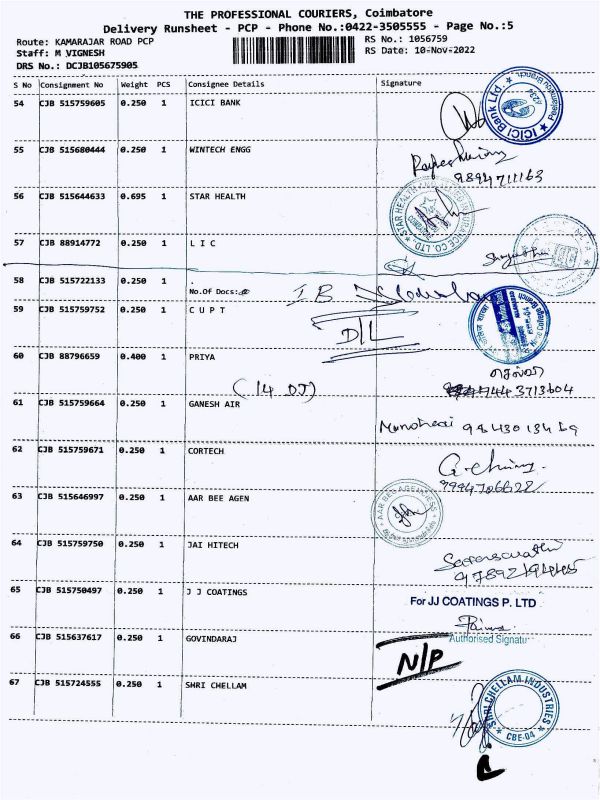 THE PROFESSIONAL COURIERS, Coimbatore
Delivery Runsheet - PCP - Phone No.:0422-3505555 - Page No.:5
Route: KAMARAJAR ROAD PCP
RS No.: 1056759
Staff: M VIGNESH
RS Date: 10-Nov-2022
DRS No.: DCJB105675905
S No Consignment No Weight PCS Consignee Details Signature
54 CJB 515759605 0.250 1 ICICI BANK
ICICI Bank Ltd.
55 CJB 515680444 0.250 1 WINTECH ENGG
9894711163
56 CJB 515644633 0.695 1 STAR HEALTH
57 CJB 88914772 0.250 1 L I C
58 CJB 515722133 0.250 1 .
No.Of Docs:
59 CJB 515759752 0.250 1 C U P T
D/L
60 CJB 88796659 0.400 1 PRIYA
செல்வா
44 3713604
61 CJB 515759664 0.250 1 GANESH AIR
62 CJB 515759671 0.250 1 CORTECH
63 CJB 515646997 0.250 1 AAR BEE AGEN
AAR BEE AGENCIESS
64 CJB 515759750 0.250 1 JAI HITECH
65 CJB 515750497 0.250 1 J J COATINGS
For JJ COATINGS P. LTD
Authorised Signatu
66 CJB 515637617 0.250 1 GOVINDARAJ
N/P
67 CJB 515724555 0.250 1 SHRI CHELLAM
SHRI CHELLAM INDUSTRIES
CBE-04